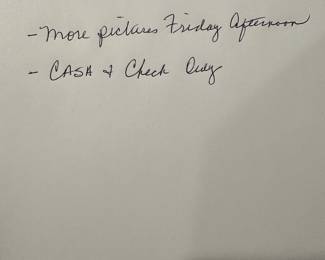 - More pictures Friday Afternoon
- CASH & Check Only